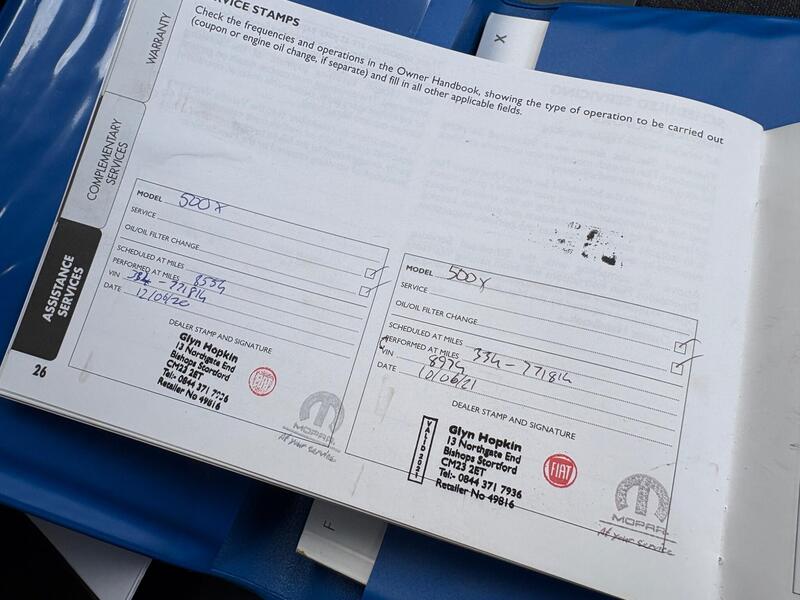 SERVICE STAMPS
Check the frequencies and operations in the Owner Handbook, showing the type of operation to be carried out
(coupon or engine oil change, if separate) and fill in all other applicable fields.
WARRANTY
COMPLEMENTARY
SERVICES
ASSISTANCE
SERVICES
26
MODEL 500X
SERVICE
OIL/OIL FILTER CHANGE
SCHEDULED AT MILES
PERFORMED AT MILES
VIN
DATE 12/06/20
DEALER STAMP AND SIGNATURE
Glyn Hopkin
13 Northgate End
Bishops Stortford
CM23 2ET
Tel:- 0844 371 7936
Retailer No 49816
MOPAR
At your service
MODEL 500X
SERVICE
OIL/OIL FILTER CHANGE
SCHEDULED AT MILES
PERFORMED AT MILES
VIN
DATE 10/06/21
DEALER STAMP AND SIGNATURE
VALID 2021
Glyn Hopkin
13 Northgate End
Bishops Stortford
CM23 2ET
Tel:- 0844 371 7936
Retailer No 49816
FIAT
MOPAR
At your service
X
F